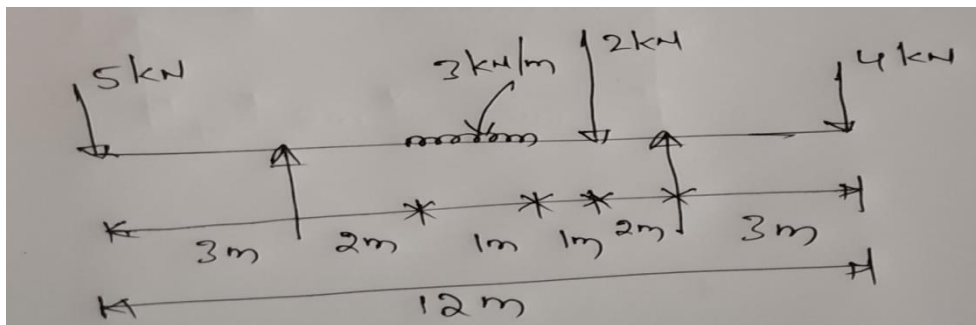 5kN 3kN/m 2kN 4kN
3m 2m 1m 1m 2m 3m
12m